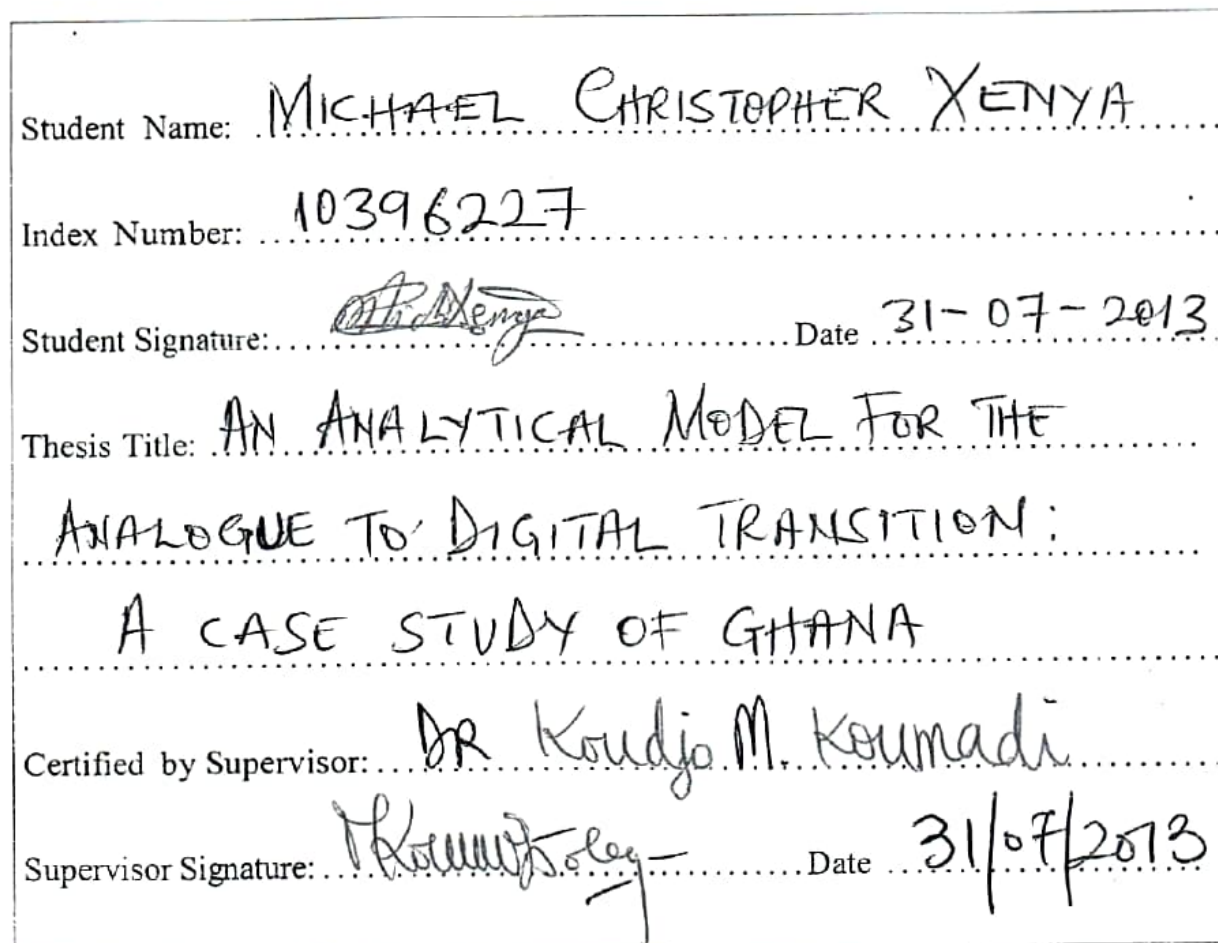 Student Name: MICHAEL CHRISTOPHER XENYA
Index Number: 10396227
Student Signature: Xenya Date 31-07-2013
Thesis Title: AN ANALYTICAL MODEL FOR THE
ANALOGUE TO DIGITAL TRANSITION:
A CASE STUDY OF GHANA
Certified by Supervisor: DR Koudjo M. Koumadi
Supervisor Signature: Date 31/07/2013